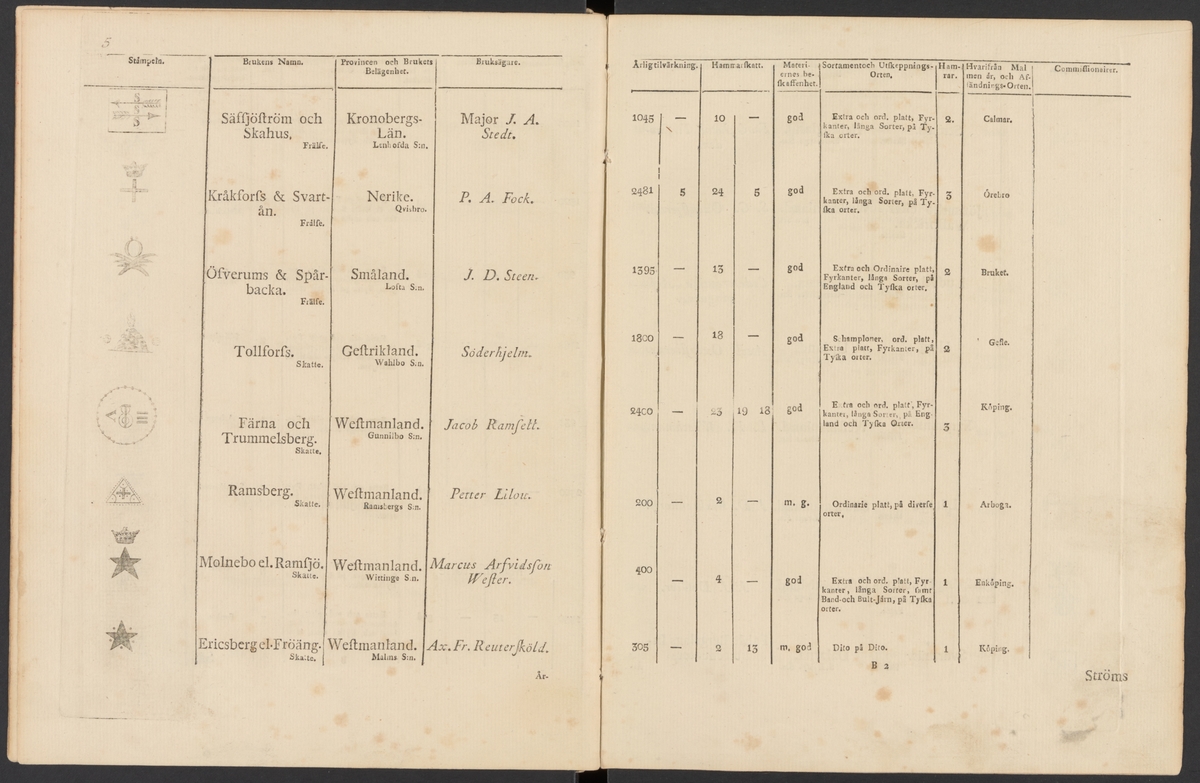 5
Stämpeln.
Brukens Namn.
Provincen och Brukets
Belägenhet.
Bruksägare.
S
S
Säſſjöſtröm och
Skahus,
Frälſe.
Kronobergs-
Län.
Lenhofda S:n.
Major J. A.
Stedt.
Kråkforſs & Svart-
ån.
Frälſe.
Nerike.
Qvisbro.
P. A. Fock.
Öfverums & Spår-
backa.
Frälſe.
Småland.
Lofta S:n.
J. D. Steen.
Tollforſs.
Skatte.
Geſtrikland.
Wahlbo S:n.
Söderhjelm.
Färna och
Trummelsberg.
Skatte.
Weſtmanland.
Gunnilbo S:n.
Jacob Ramſell.
Ramsberg.
Skatte.
Weſtmanland.
Ramsbergs S:n.
Petter Lilou.
Molnebo el. Ramſjö.
Skatte.
Weſtmanland.
Wittinge S:n.
Marcus Arfvidsſon
Weſter.
Ericsberg el. Fröäng.
Skatte.
Weſtmanland.
Malma S:n.
Ax. Fr. Reuterſköld.
År-
Årlig tilvärkning.
Hammarſkatt.
Materi-
ernes be-
ſkaffenhet.
Sortament och Utſkeppnings-
Orten.
Ham-
rar.
Hvarifrån Mal
men är, och Af-
ſändnings-Orten.
Commiſſionairer.
1045 — 10 — god
Extra och ord. platt, Fyr-
kanter, långa Sorter, på Ty-
ſka orter.
2.
Calmar.
2481 5 24 5 god
Extra och ord. platt, Fyr-
kanter, långa Sorter, på Ty-
ſka orter.
3
Örebro
1395 — 13 — god
Extra och Ordinaire platt,
Fyrkanter, långa Sorter, på
England och Tyſka orter.
2
Bruket.
1800 — 18 — god
Schamploner, ord. platt,
Extra platt, Fyrkanter, på
Tyſka orter.
2
Gefle.
2400 — 23 19 18 god
Extra och ord. platt, Fyr-
kanter, långa Sorter, på Eng
land och Tyſka Orter.
3
Köping.
200 — 2 — m. g.
Ordinarie platt, på diverſe
orter,
1
Arboga.
400 — 4 — god
Extra och ord. platt, Fyr-
kanter, långa Sorter, ſamt
Band- och Bult-Järn, på Tyſka
orter.
1
Enköping.
305 — 2 13 m. god
Dito på Dito.
1
Köping.
B 2
Ströms